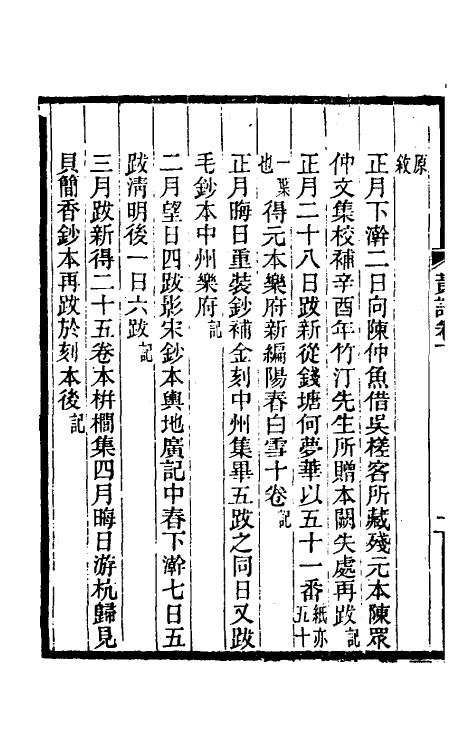 黃譜卷
原敘
正月下澣二日向陳仲魚借吳槎客所藏殘元本陳眾
仲文集校補辛酉年竹汀先生所贈本闕失處再跋記
正月二十八日跋新從錢塘何夢華以五十一番紙亦五十
一葉也得元本樂府新編陽春白雪十卷記
正月晦日重裝鈔補金刻中州集畢五跋之同日又跋
毛鈔本中州樂府記
二月望日四跋影宋鈔本輿地廣記中春下澣七日五
跋清明後一日六跋記
三月跋新得二十五卷本栟櫚集四月晦日游杭歸見
貝簡香鈔本再跋於刻本後記